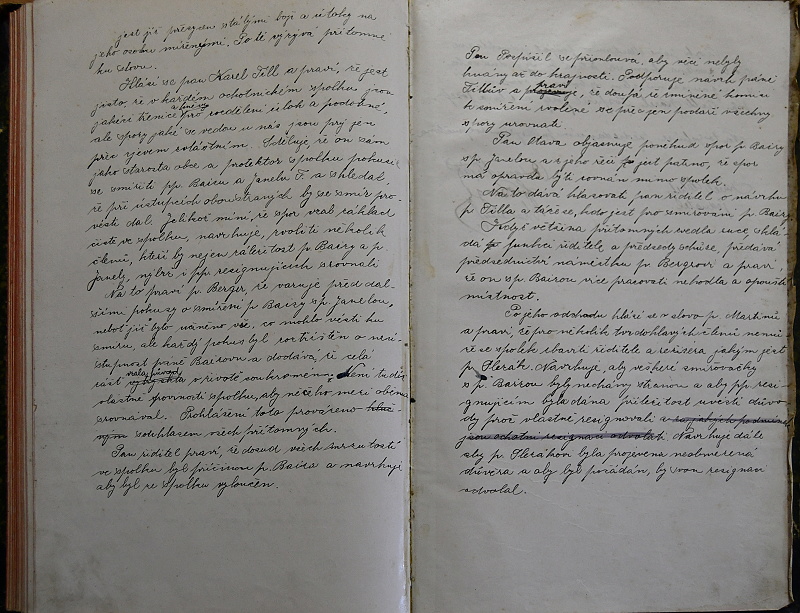 jest již přesycen stálými boji a útoky na
jeho osobu mířenými. Po té vyzývá přítomné
ku slovu.
Hlásí se pan Karel Fill a praví, že jest
jisto, že v každém ochotnickém spolku jsou
jakési třenice pro rozdělení úloh a podobné,
ale spory jaké se vedou u nás jsou prý jen
přec zjevem zvláštním. Sděluje, že on sám
jako starosta obce a protektor spolku pokusil
se smířiti pp. Baizu a Janelu F. a shledal
že při ústupcích oboustranných by se smír pro-
vésti dal. Jelikož míní, že spor vzal základ
čistě ve spolku, navrhuje, zvoliti několik
členů, kteří by nejen záležitost p. Baizy a p.
Janely, nýbrž i pp. resignujících srovnali
Na to praví p. Berger, že varuje před dal-
šími pokusy o smíření p. Baizy s p. Janelou,
neboť již bylo učiněno vše, co mohlo vésti ku
smíru, ale každý pokus byl roztříštěn o neú-
stupnost páně Baizovu a dodává, že celá
část v životě soukromém. Není tudíž
vlastně povinností spolku, aby něčeho mezi oběma
srovnával. Prohlášení toto provázeno
souhlasem všech přítomných.
Pan ředitel praví, že dosud všech mrzutostí
ve spolku byl příčinou p. Baiza a navrhuje
aby byl ze spolku vyloučen.
Pan Pospíšil se přimlouvá, aby věci nebyly
hnány až do krajnosti. Podporuje návrh páně
Fillův a praví, že doufá, že zmíněné komisi
k smíření zvolené se přec jen podaří všechny
spory urovnati.
Pan Vtava objasňuje poněkud spor p. Baizy
s p. Janelou a z jeho řeči jest patrno, že spor
má opravdu býti rovnán mimo spolek.
Na to dává hlasovat pan ředitel o návrhu
p. Filla a táže se, kdo jest pro smiřování p. Baizy.
Když většina přítomných zvedla ruce, sklá-
dá funkci ředitele, a předsedy schůze, předává
předsednictví náměstku p. Bergrovi a praví,
že on s p. Baizou více pracovati nehodlá a opouští
místnost.
Po jeho odchodu hlásí se o slovo p. Martinů
a praví, že pro několik tvrdohlavých členů nemů-
že se spolek zbavit ředitele a režiséra jakým jest
p. Herák. Navrhuje, aby veškeré smiřovačky
s p. Baizou byly nechány stranou a aby pp. resi-
gnujícím byla dána příležitost uvésti důvo-
dy proč vlastně resignovali a za jakých podmínek
jsou ochotni resignaci odvolati. Navrhuje dále
aby p. Herákovi byla projevena neobmezená
důvěra a aby byl požádán, by svou resignaci
odvolal.